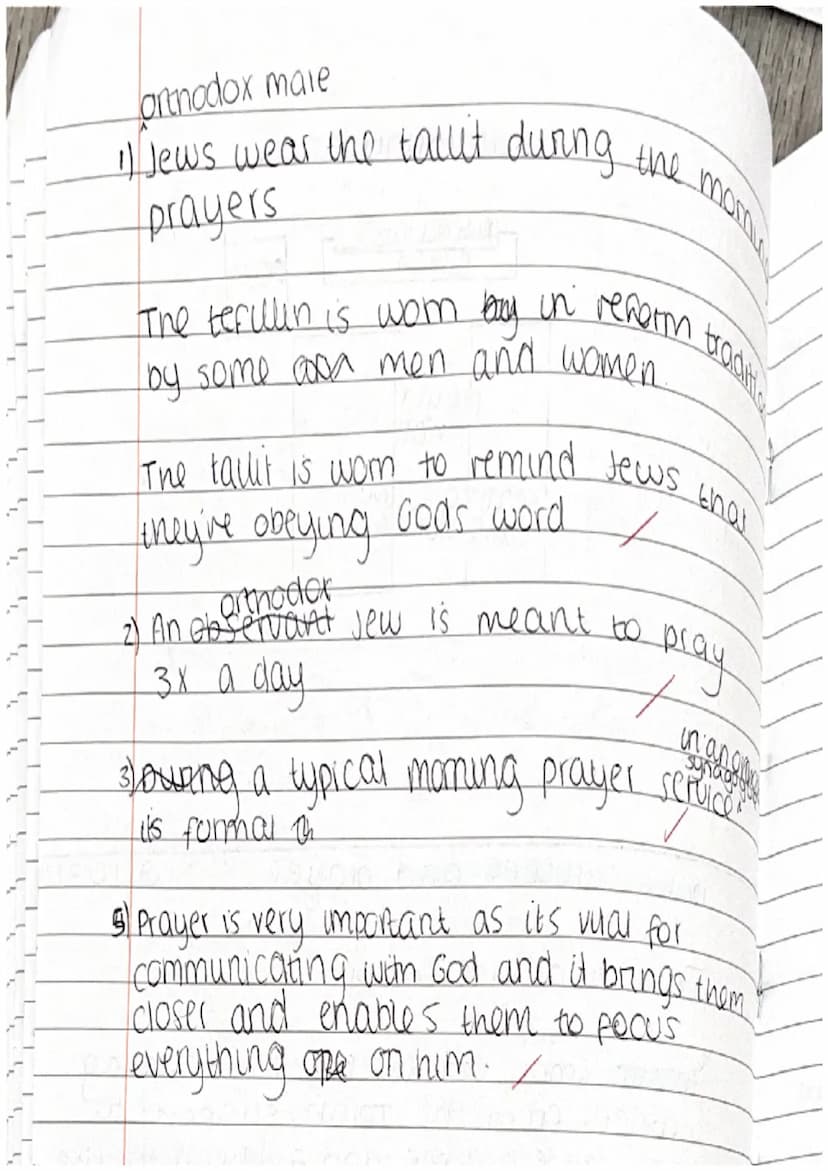 orthodox male
1) Jews wear the tallit during the morning
prayers
The tefillin is worn in reform traditio
by some men and women.
The tallit is worn to remind Jews that
they're obeying Gods word
orthodox
2) An observant Jew is meant to pray
3x a day
in an
synagogue
3) During a typical morning prayer service
is formal
5) Prayer is very important as its vital for
communicating with God and it brings them
closer and enables them to focus
everything on him.